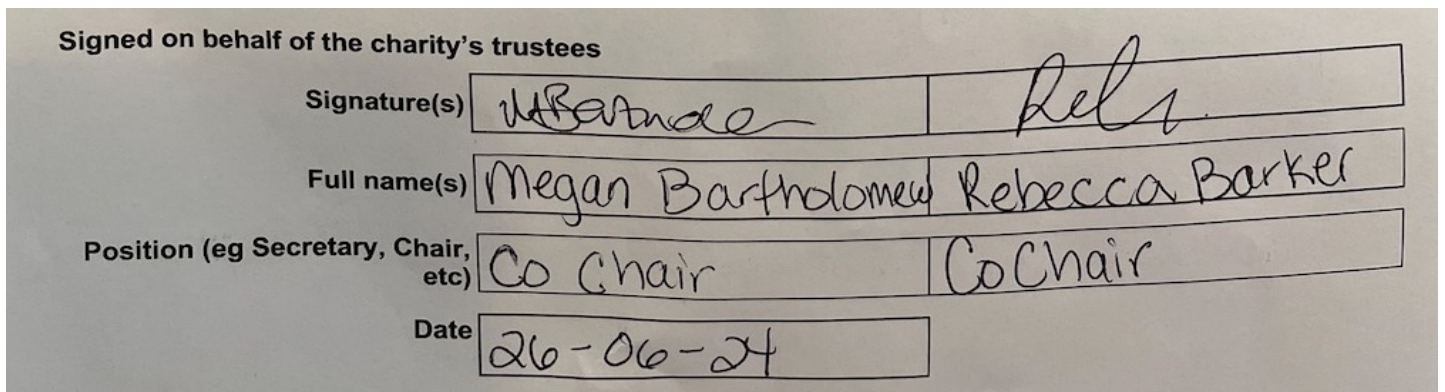 Signed on behalf of the charity's trustees
Signature(s)
Full name(s) Megan Bartholomew Rebecca Barker
Position (eg Secretary, Chair, Co Chair CoChair
etc)
Date 26-06-24